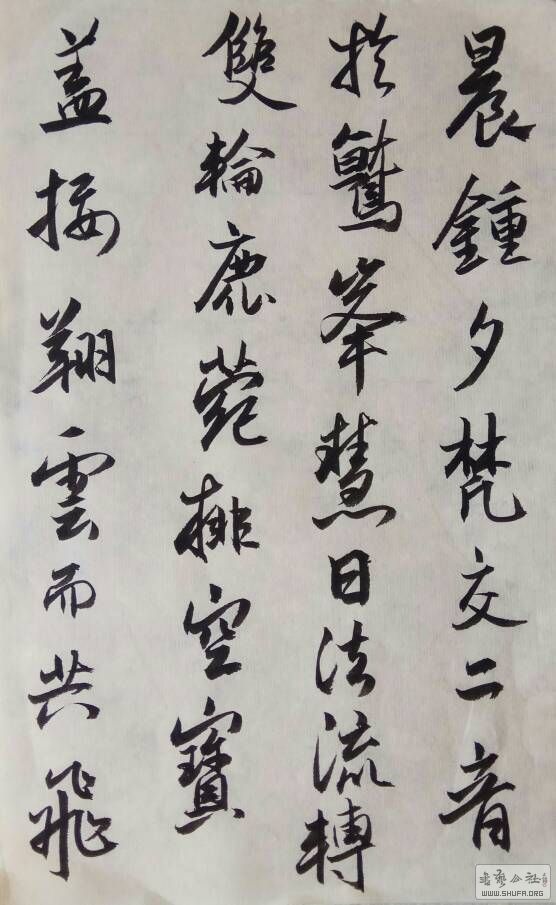 晨鍾夕梵交二音
於鷲峯慧日法流轉
雙輪鹿菀排空寶
蓋接翔雲而共飛
书艺公社
WWW.SHUFA.ORG